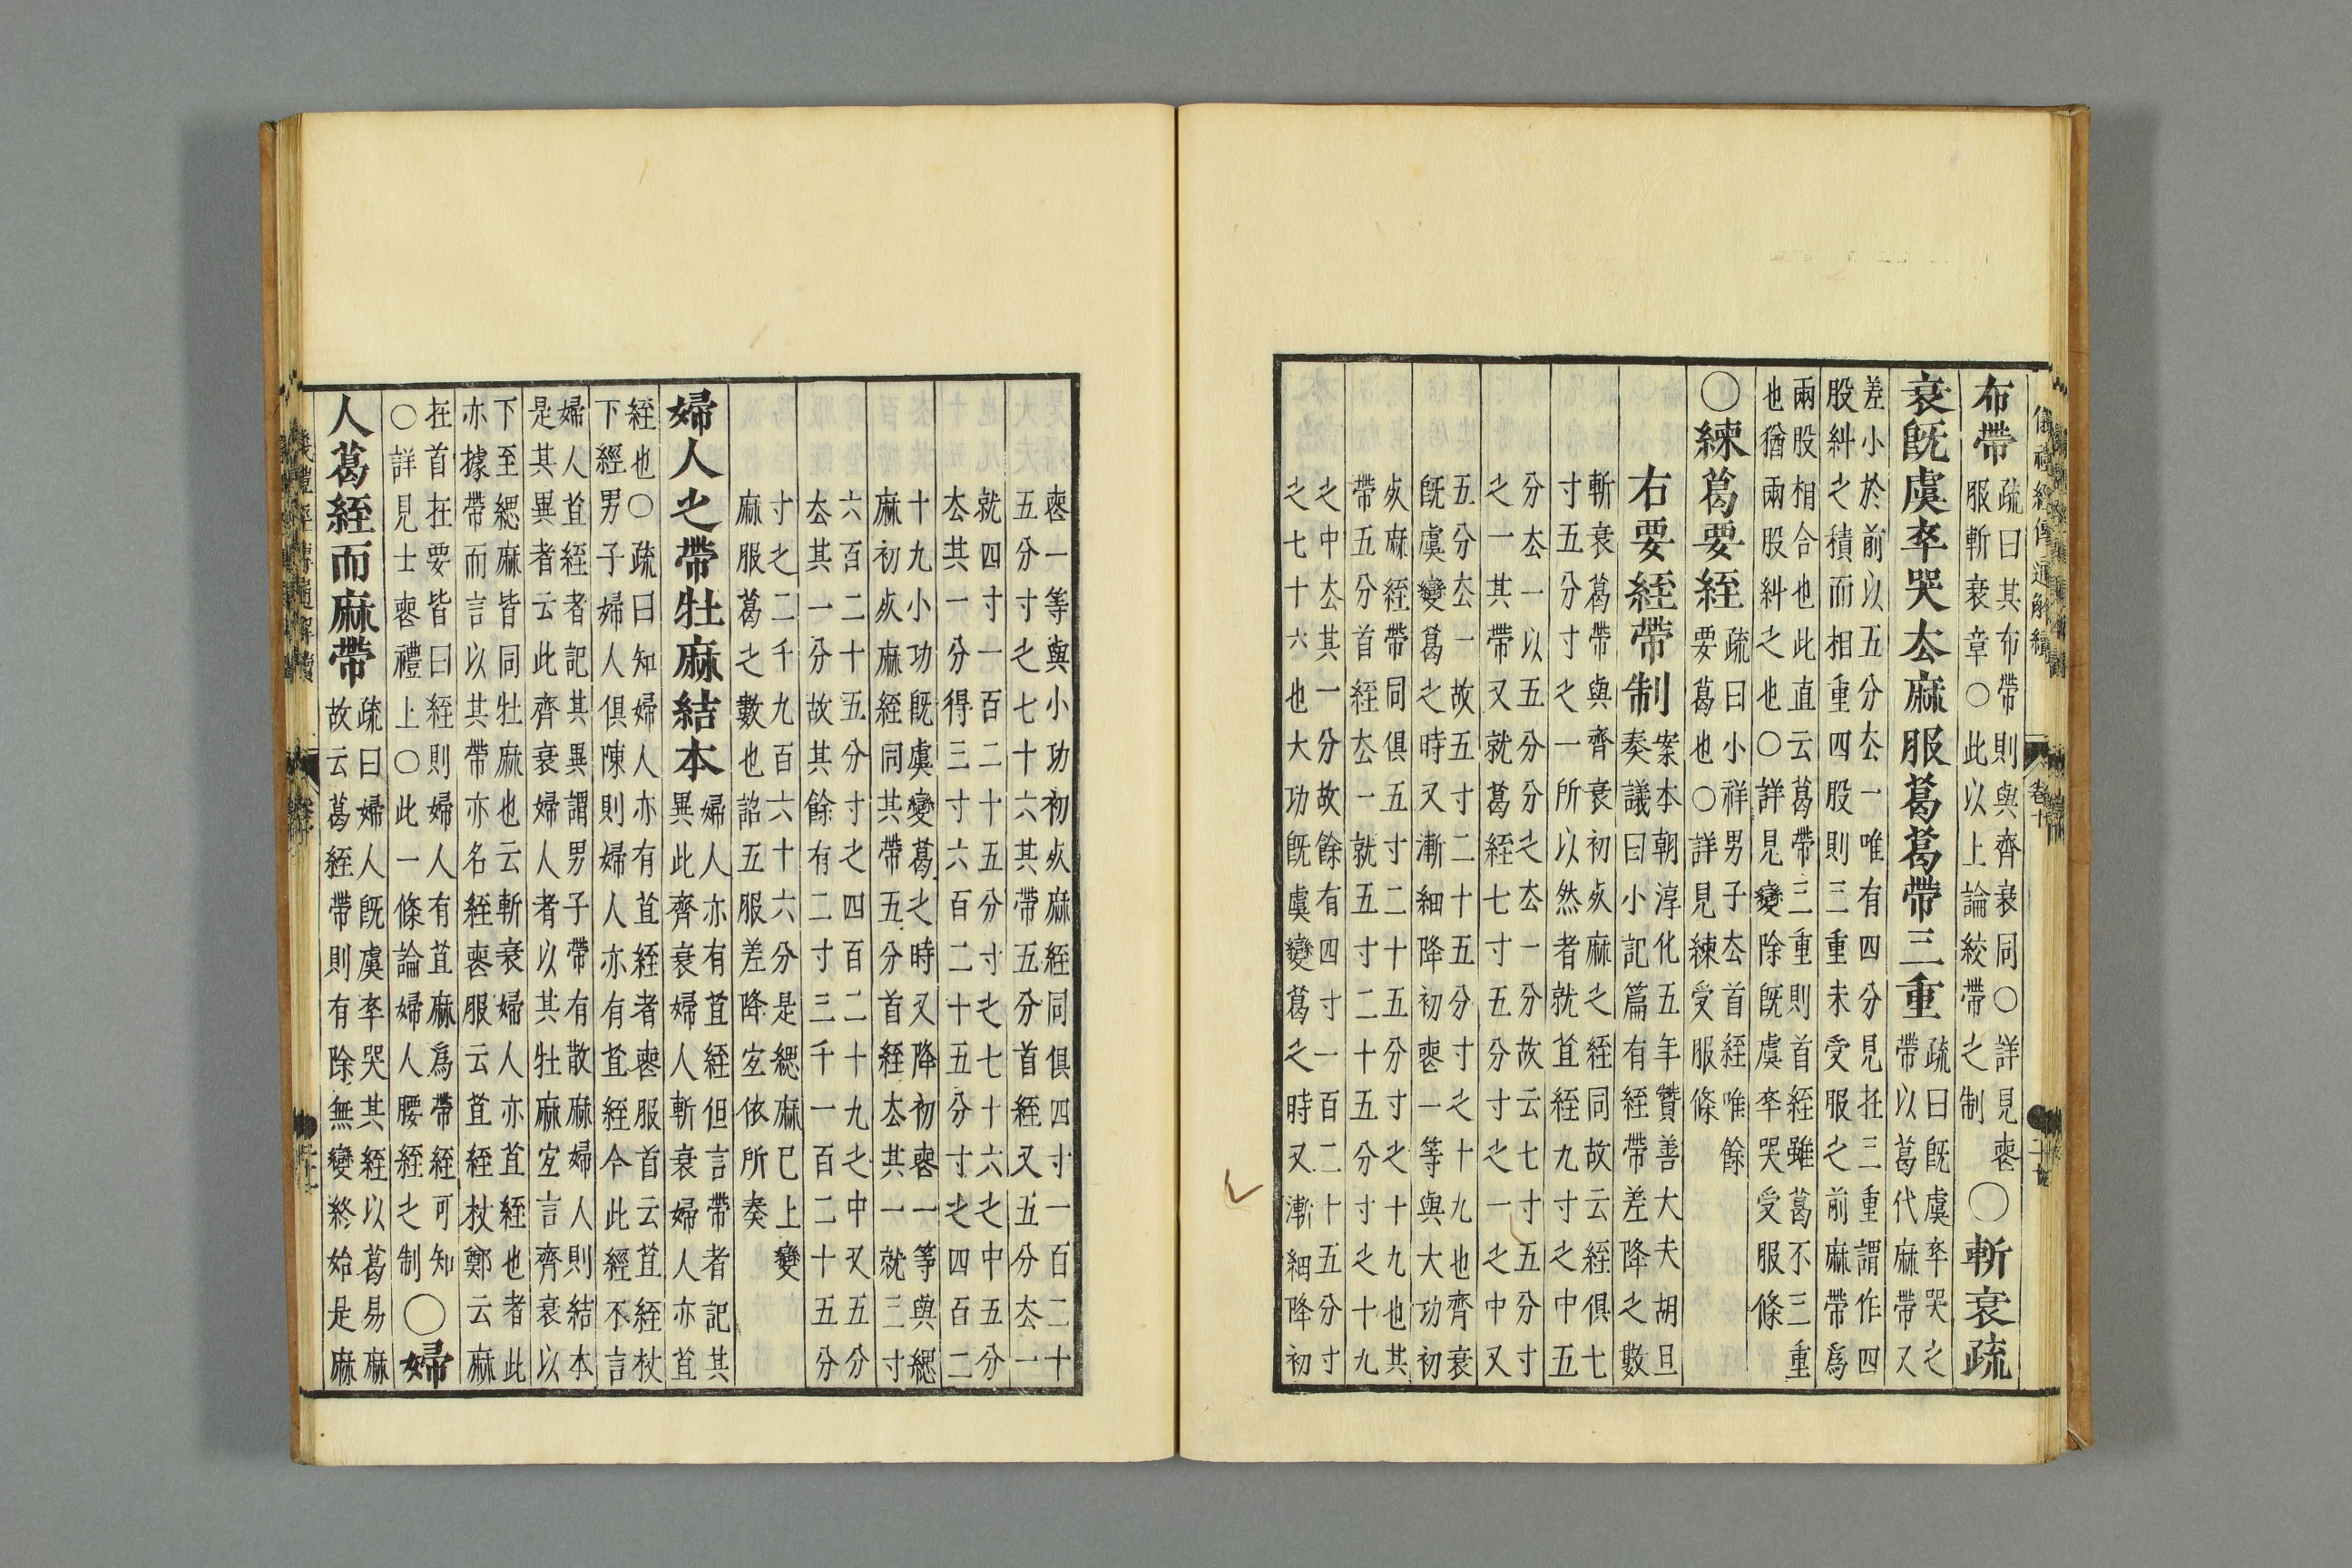 儀禮經傳通解續 卷十
布帶
疏曰其布帶則與齊衰同○詳見喪
服斬衰章○此以上論絞帶之制
○斬衰疏
衰旣虞卒哭去麻服葛葛帶三重
疏曰旣虞卒哭之
帶以葛代麻帶又
差小於前以五分去一唯有四分見在三重謂作四
股糾之積而相重四股則三重未受服之前麻帶爲
兩股相合也此直云葛帶三重則首絰雖葛不三重
也猶兩股糾之也○詳見變除旣虞卒哭受服條
○練葛要絰
疏曰小祥男子去首絰唯餘
要葛也○詳見練受服條
右要絰帶制
案本朝淳化五年贊善大夫胡旦
奏議曰小記篇有絰帶差降之數
斬衰葛帶與齊衰初死麻之絰同故云絰俱七
寸五分寸之一所以然者就苴絰九寸之中五
分去一以五分分之去一分故云七寸五分寸
之一其帶又就葛絰七寸五分寸之一之中又
五分去一故五寸二十五分寸之十九也齊衰
旣虞變葛之時又漸細降初喪一等與大功初
死麻絰帶同俱五寸二十五分寸之十九也其
帶五分首絰去一就五寸二十五分寸之十九
之中去其一分故餘有四寸一百二十五分寸
之七十六也大功旣虞變葛之時又漸細降初
喪一等與小功初死麻絰同俱四寸一百二十
五分寸之七十六其帶五分首絰又五分去一
就四寸一百二十五分寸之七十六之中五分
去其一分得三寸六百二十五分寸之四百二
十九小功旣虞變葛之時又降初喪一等與緦
麻初死麻絰同其帶五分首絰去其一就三寸
六百二十五分寸之四百二十九之中又五分
去其一分故其餘有二寸三千一百二十五分
寸之二千九百六十六分是緦麻已上變
麻服葛之數也詔五服差降宜依所奏
婦人之帶牡麻結本
婦人亦有苴絰但言帶者記其
異此齊衰婦人斬衰婦人亦苴
絰也○疏曰知婦人亦有苴絰者喪服首云苴絰杖
下經男子婦人俱陳則婦人亦有苴絰今此經不言
婦人苴絰者記其異謂男子帶有散麻婦人則結本
是其異者云此齊衰婦人者以其牡麻宜言齊衰以
下至緦麻皆同牡麻也云斬衰婦人亦苴絰也者此
亦據帶而言以其帶亦名絰喪服云苴絰杖鄭云麻
在首在要皆曰絰則婦人有苴麻爲帶絰可知
○詳見士喪禮上○此一條論婦人腰絰之制
○婦
人葛絰而麻帶
疏曰婦人旣虞卒哭其絰以葛易麻
故云葛絰帶則有除無變終始是麻